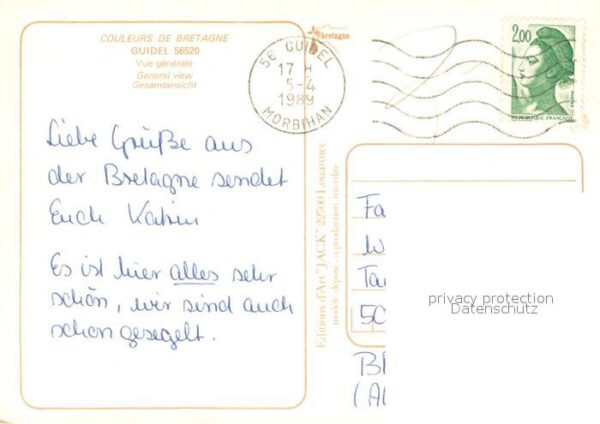 COULEURS DE BRETAGNE
GUIDEL 56520
Vue générale
General view
Gesamtansicht
bretagne
56 GUIDEL
17 H
5-4
1989
MORBIHAN
2,00
REPUBLIQUE FRANÇAISE
Liebe Grüße aus
der Bretagne sendet
Euch Katrin
Es ist hier alles sehr
schön, wir sind auch
schon gesegelt.
Editions d'Art "JACK" 22700 Louannec
modèle déposé - reproduction interdite
Fa
Ta
50
privacy protection
Datenschutz